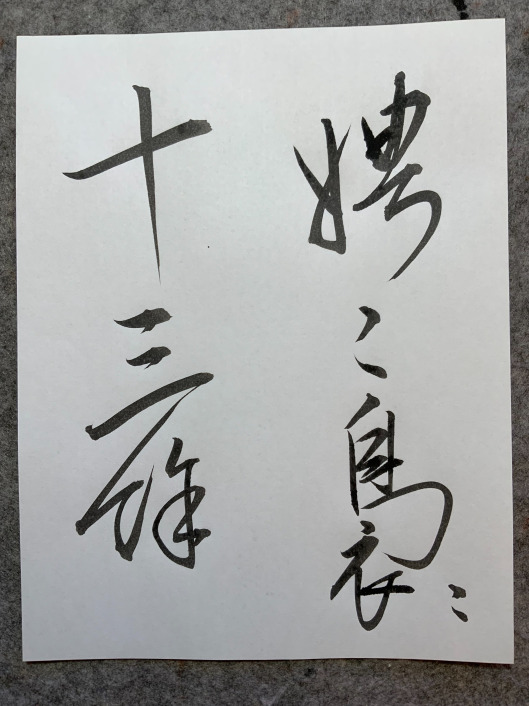 娉〻裊〻
十三餘